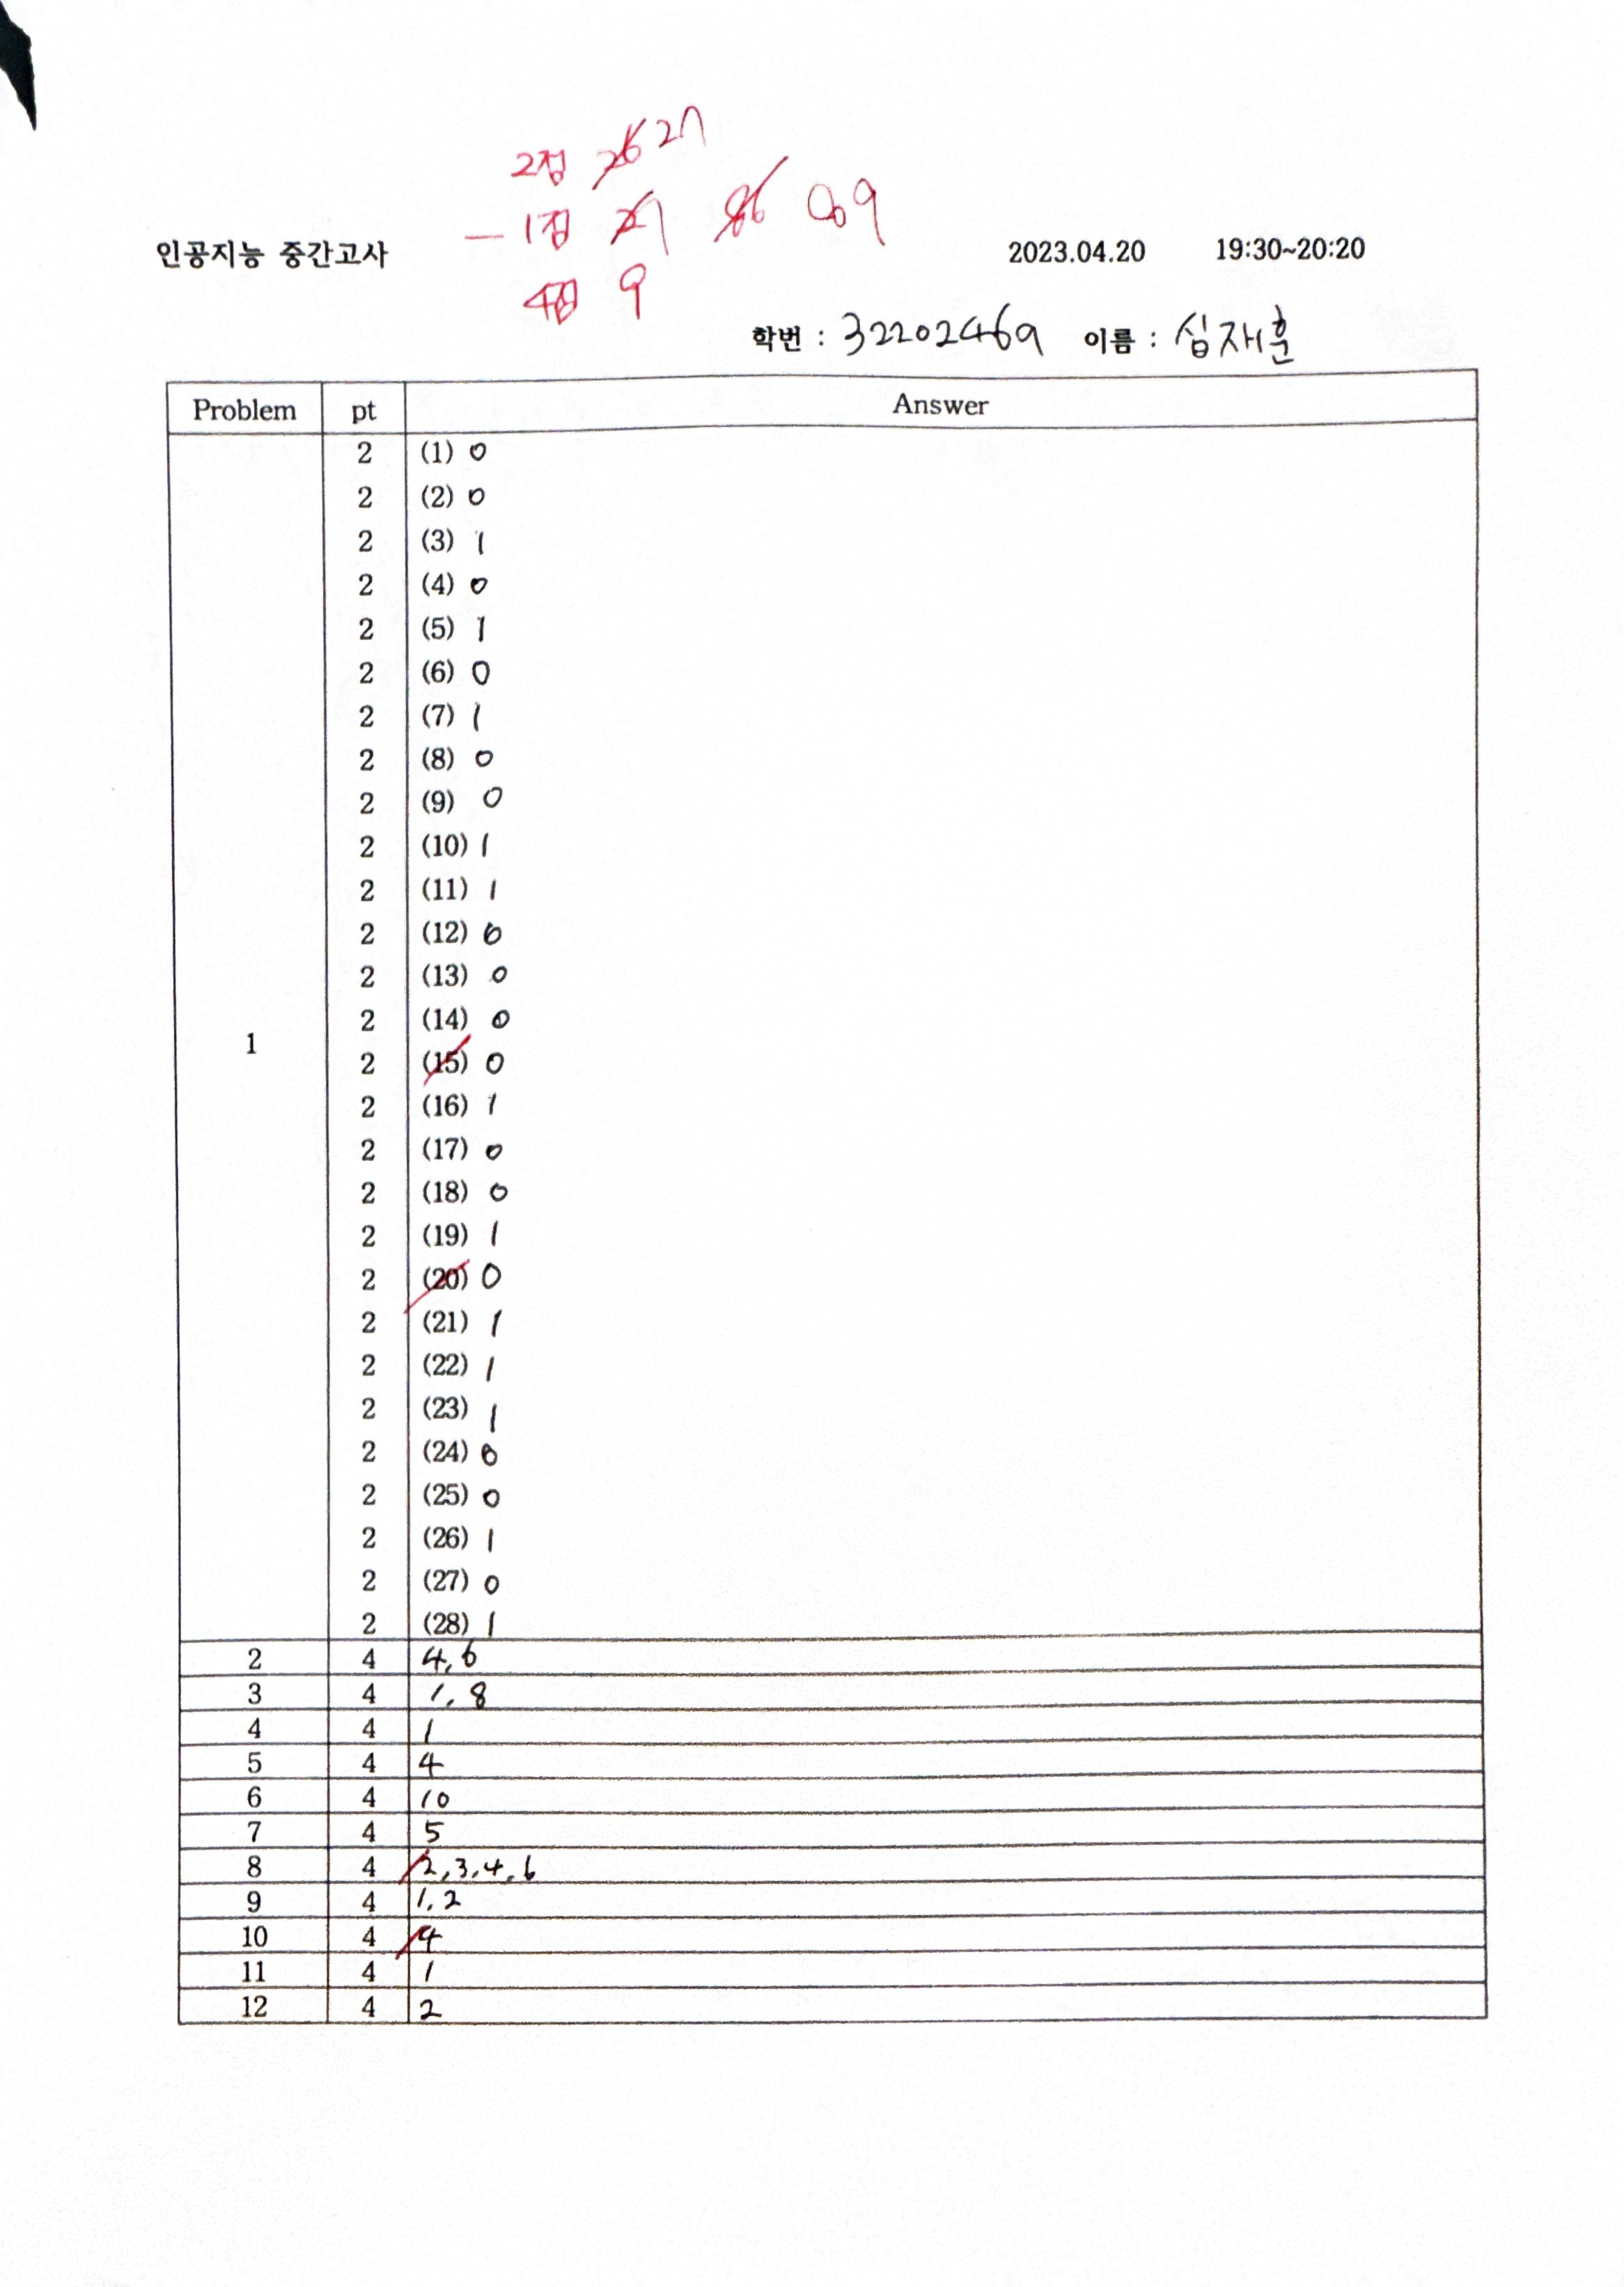 2점 26 27
인공지능 중간고사 - 1점 27 86 89 2023.04.20 19:30~20:20
4점 9
학번 : 32202469 이름 : 심재훈
Problem pt Answer
2 (1) 0
2 (2) 0
2 (3) 1
2 (4) 0
2 (5) 1
2 (6) 0
2 (7) 1
2 (8) 0
2 (9) 0
2 (10) 1
2 (11) 1
2 (12) 0
2 (13) 0
2 (14) 0
1
2 (15) 0
2 (16) 1
2 (17) 0
2 (18) 0
2 (19) 1
2 (20) 0
2 (21) 1
2 (22) 1
2 (23) 1
2 (24) 0
2 (25) 0
2 (26) 1
2 (27) 0
2 (28) 1
2 4 4, 6
3 4 1, 8
4 4 1
5 4 4
6 4 10
7 4 5
8 4 2, 3, 4, 6
9 4 1, 2
10 4 4
11 4 1
12 4 2